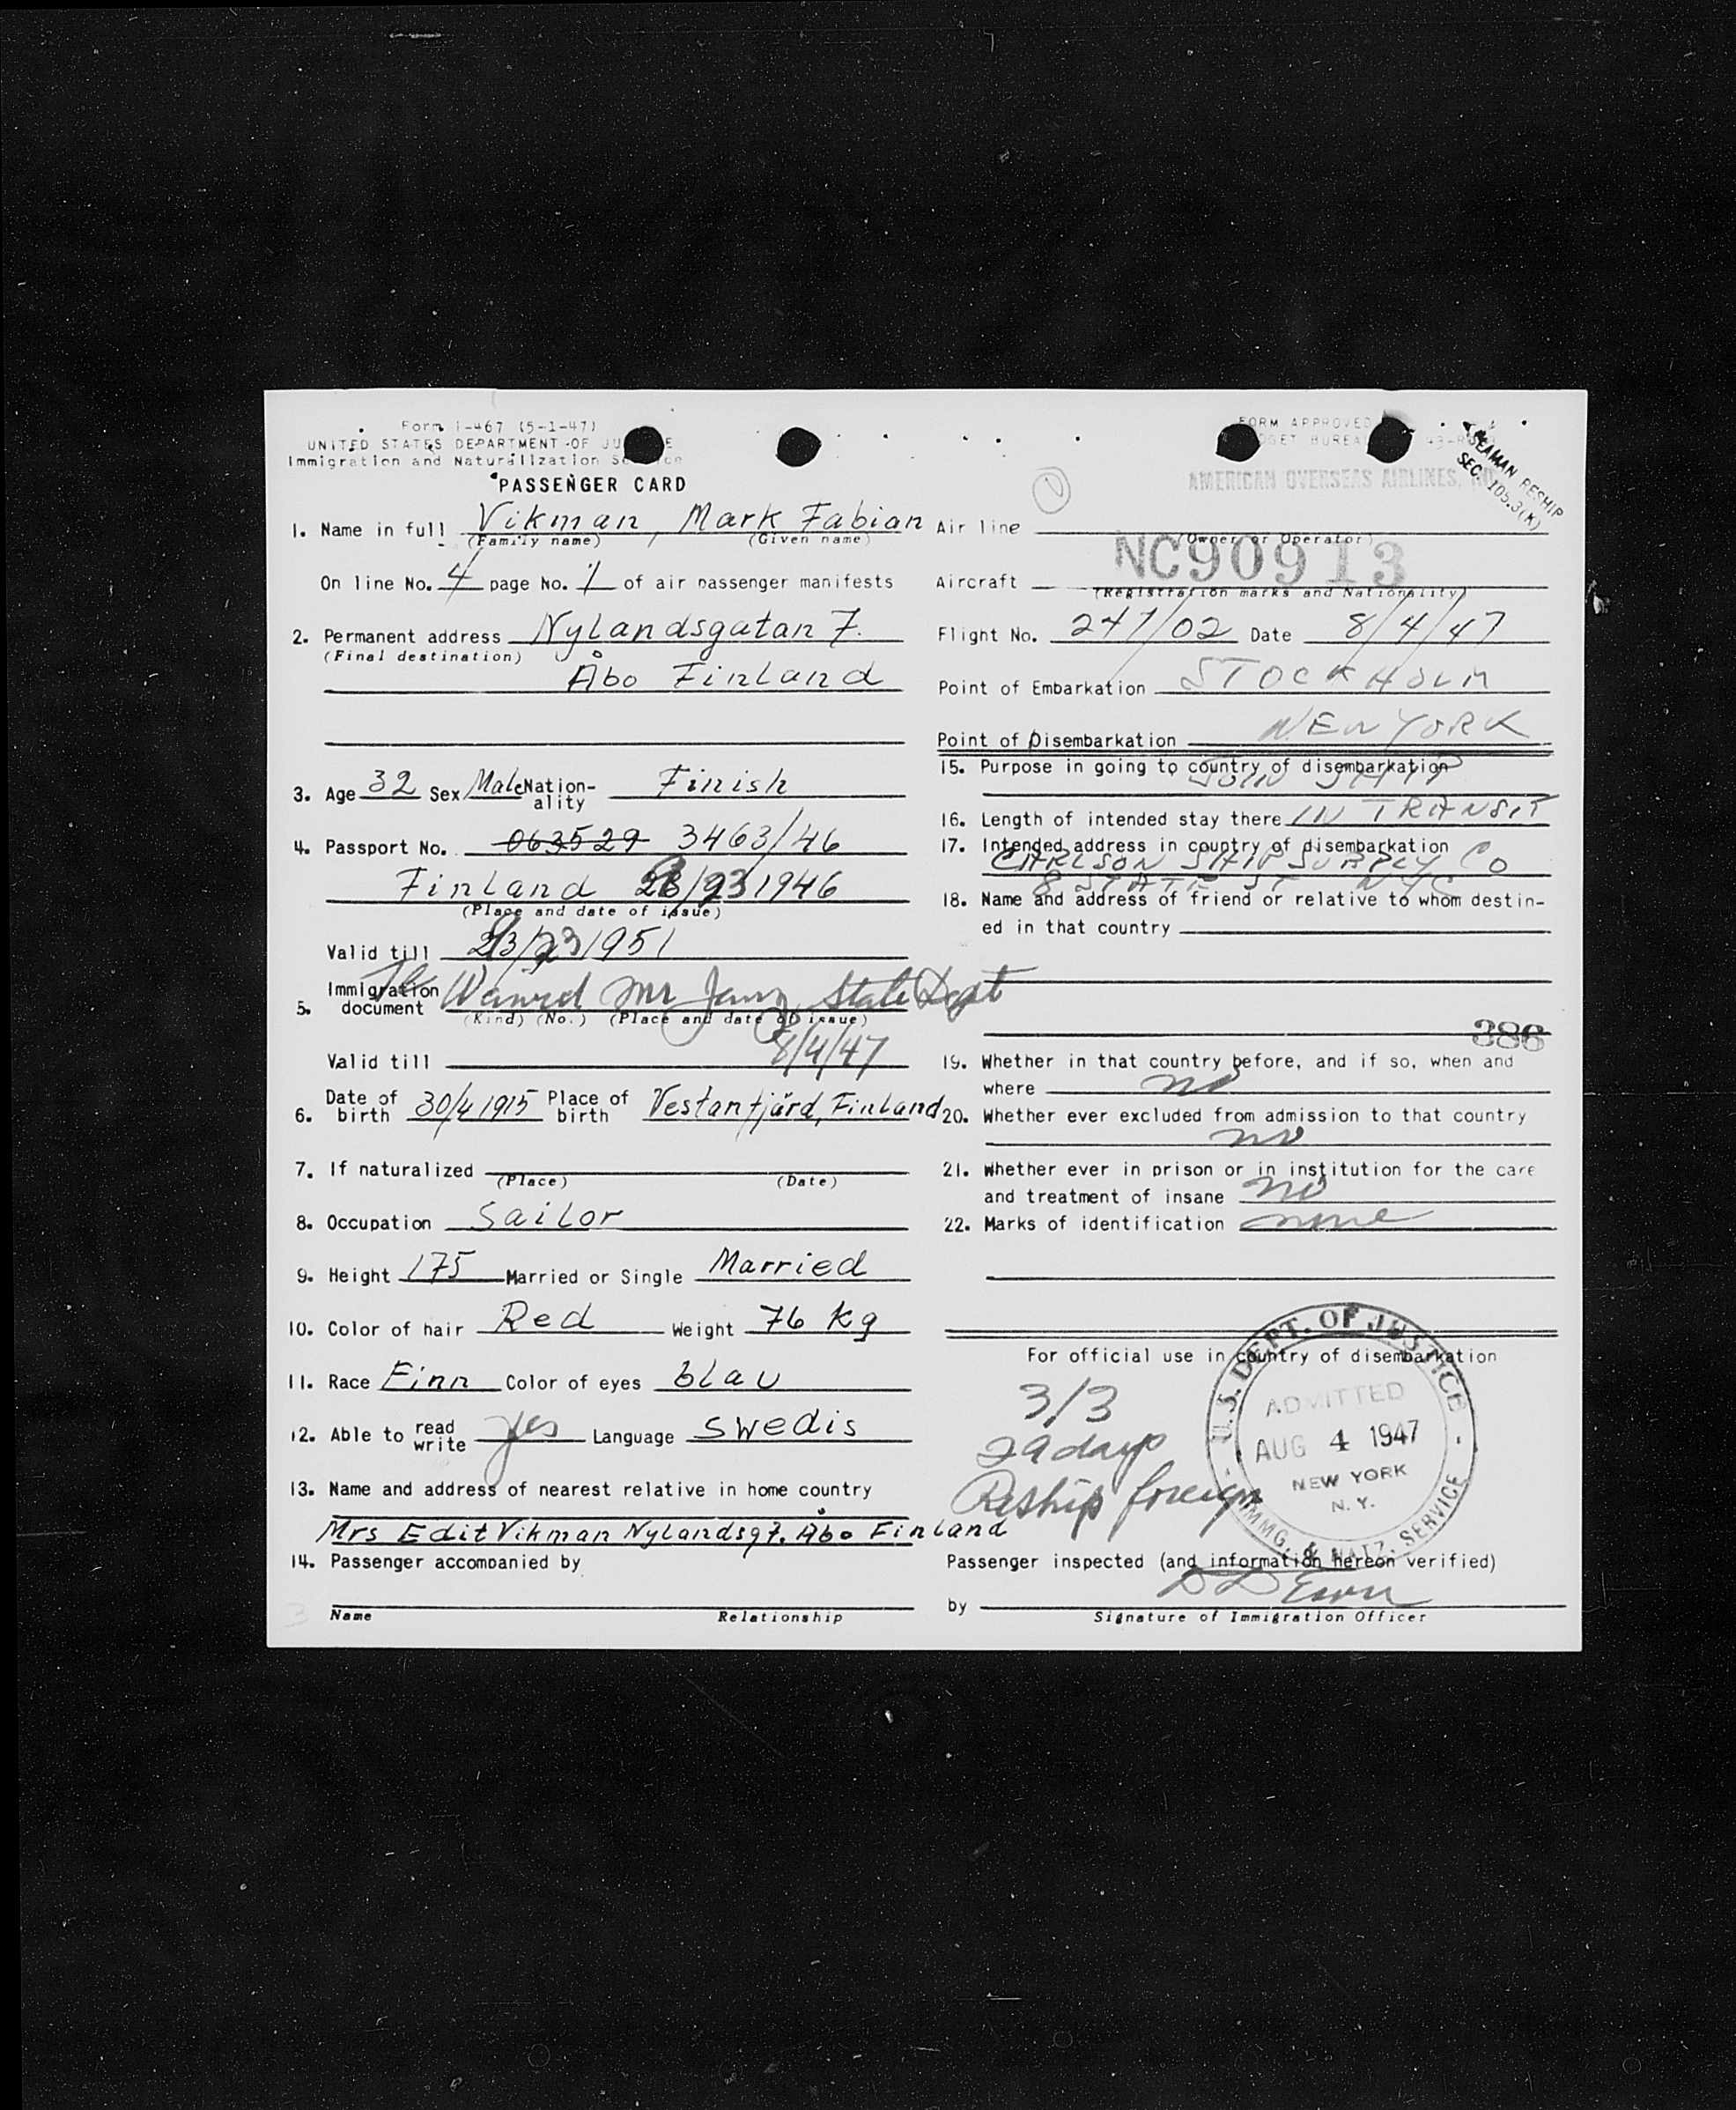 Form I-467 (5-1-47)
UNITED STATES DEPARTMENT OF
Immigration and Naturalization
PASSENGER CARD
1. Name in full Vikman, Mark Fabian
(Family name) (Given name)
On line No. 4 page No. 1 of air passenger manifests
2. Permanent address Nylandsgatan 7.
(Final destination)
Åbo Finland
3. Age 32 Sex Male Nationality Finish
4. Passport No. 063529 3463/46
Finland 1946
(Place and date of issue)
Valid till 1951
5. Immigration document Waived Mr State Dept
(Kind) (No.) (Place and date of issue)
8/4/47
Valid till
6. Date of birth 30/4 1915 Place of birth Vestanfjärd, Finland
7. If naturalized
(Place) (Date)
8. Occupation Sailor
9. Height 175 Married or Single Married
10. Color of hair Red Weight 76 kg
11. Race Finn Color of eyes blau
12. Able to read write yes Language Swedis
13. Name and address of nearest relative in home country
Mrs Edit Vikman Nylandsg 7. Åbo Finland
14. Passenger accompanied by
3
Name Relationship
FORM APPROVED
BUREAU
SEAMAN RESHIP
SEC. 105.3(K)
AMERICAN OVERSEAS AIRLINES,
1
Air line
(Owner or Operator)
NC90913
Aircraft
(Registration marks and Nationality)
Flight No. 247/02 Date 8/4/47
Point of Embarkation STOCKHOLM
Point of Disembarkation NEW YORK
15. Purpose in going to country of disembarkation
JOIN SHIP
16. Length of intended stay there IN TRANSIT
17. Intended address in country of disembarkation
CARLSON SHIP SUPPLY CO
8 STATE ST NYC
18. Name and address of friend or relative to whom destin-
ed in that country
386
19. Whether in that country before, and if so, when and
where no
20. Whether ever excluded from admission to that country
no
21. Whether ever in prison or in institution for the care
and treatment of insane no
22. Marks of identification none
For official use in country of disembarkation
3/3
29 days
Reship foreign
U.S. DEPT. OF JUSTICE
ADMITTED
AUG 4 1947
NEW YORK
N.Y.
IMMG. & NATZ. SERVICE
Passenger inspected (and information hereon verified)
by
Signature of Immigration Officer